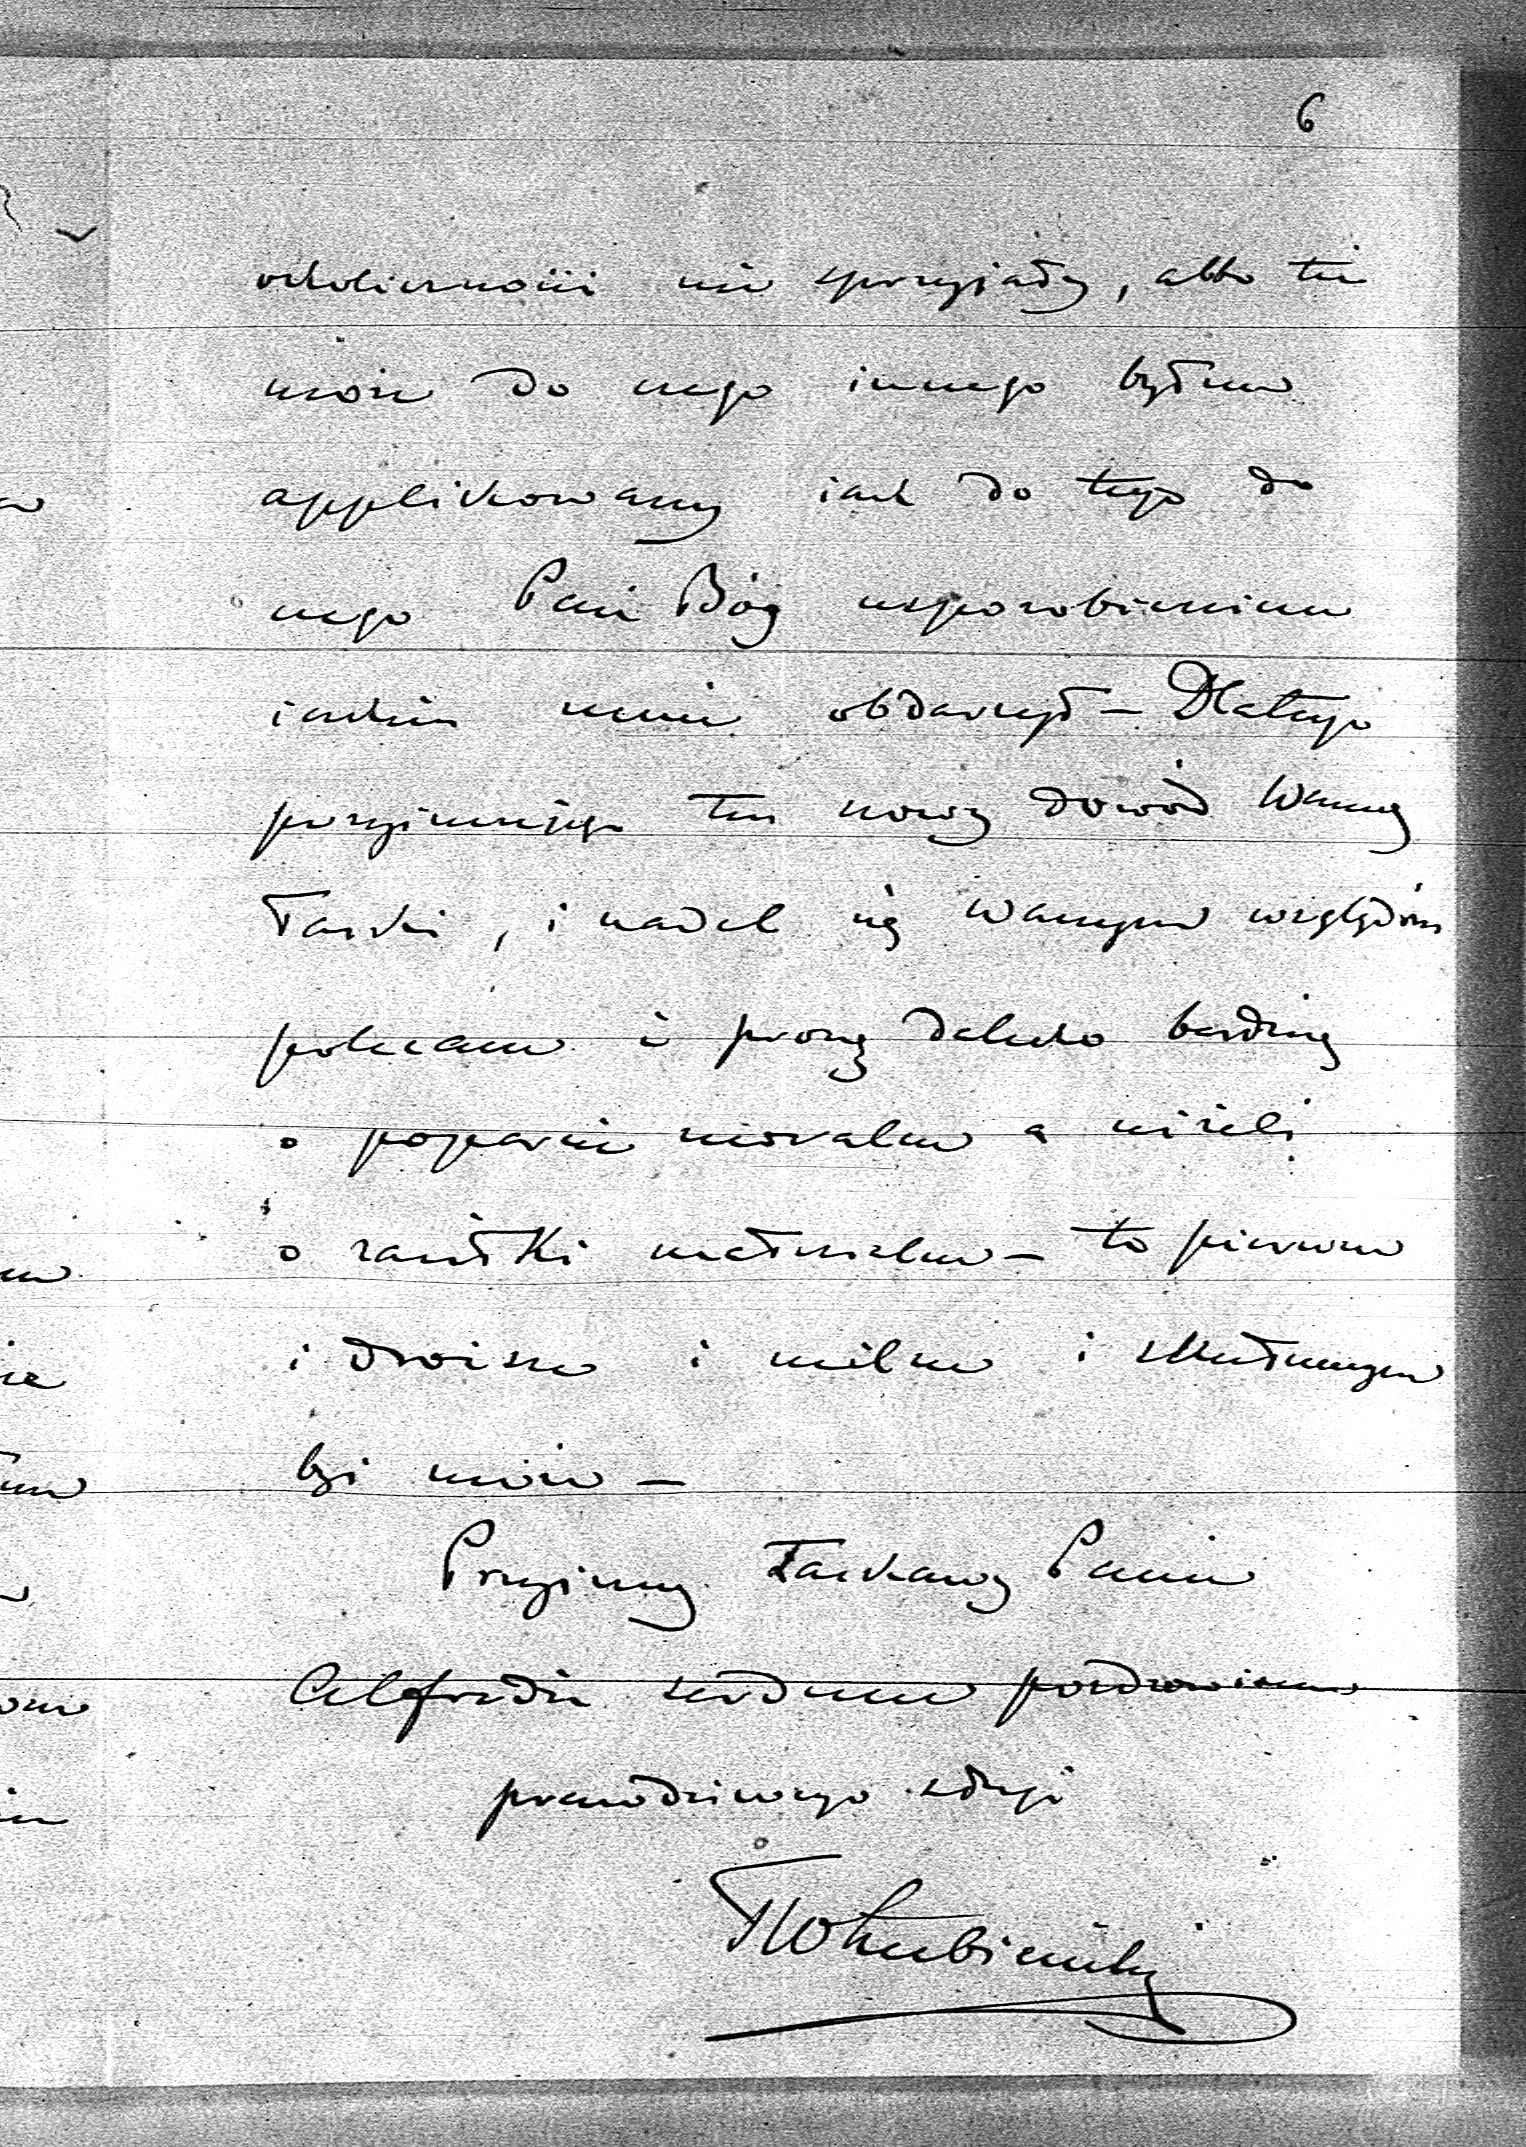 6
okoliczności nie sprzyjały, albo też
może do czego innego byłem
applikowany jak do tego do
czego Pan Bóg usposobieniem
jakim mnie obdarzył – Dlatego
przyjmuję ten nowy dowód Waszej
łaski, i nadal się Waszym względom
polecam i proszę daleko bardziej
o poparcie moralne a niżeli
o zasiłki materialne – to pierwsze
i droższe i milsze i skuteczniejszem
być może –
Przyjmij Łaskawy Panie
Alfredzie serdeczne pozdrowienie
prawdziwego sługi